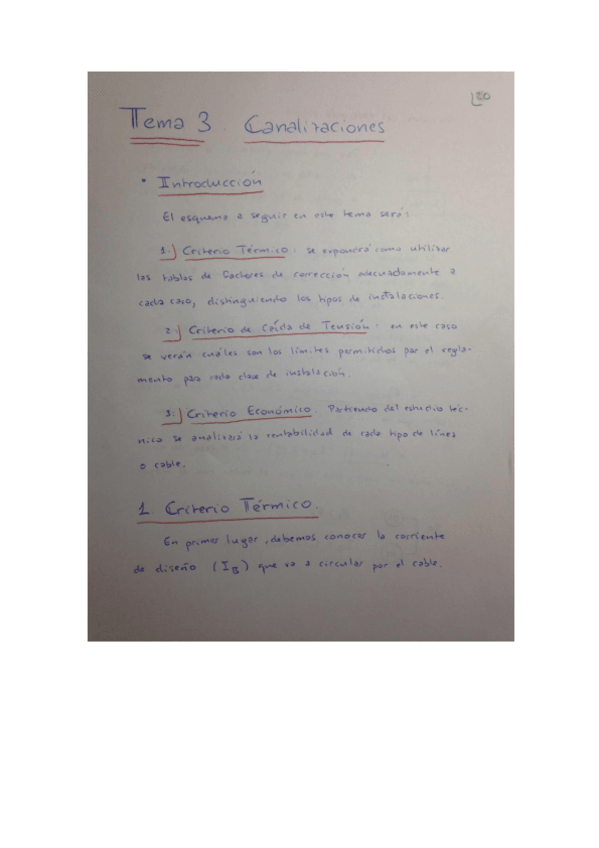 Tema 3. Canalizaciones
• Introducción
El esquema a seguir en este tema será:
1.) Criterio Térmico: se expondrá como utilizar
las tablas de factores de corrección adecuadamente a
cada caso, distinguiendo los tipos de instalaciones.
2.) Criterio de Caída de Tensión: en este caso
se verán cuáles son los límites permitidos por el regla-
mento para cada clase de instalación.
3.) Criterio Económico. Partiendo del estudio téc-
nico se analizará la rentabilidad de cada tipo de línea
o cable.
1 Criterio Térmico.
En primer lugar, debemos conocer la corriente
de diseño (IB) que va a circular por el cable.